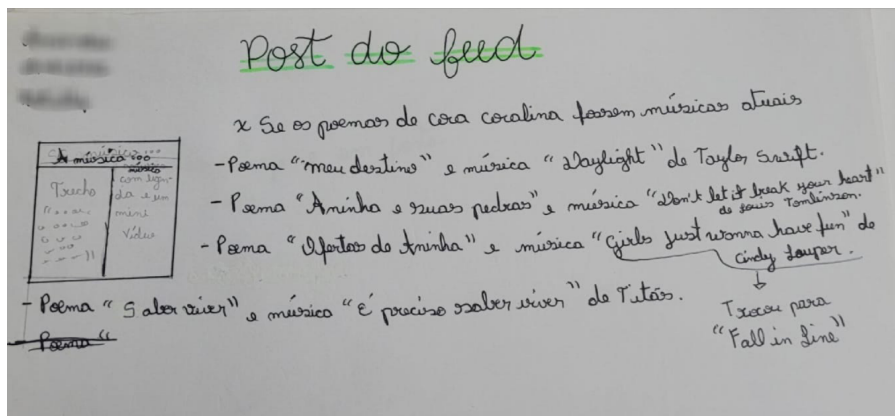 Post do feed
x Se os poemas de cora coralina fossem músicas atuais
- Poema "meu destino" e música "Daylight" de Taylor Swift.
- Poema "Aninha e suas pedras" e música "Don't let it break your heart"
de Louis Tomlinson.
- Poema "Ofertas de Aninha" e música "Girls just wanna have fun" de
Cindy Lauper.
Trocou para
"Fall in Line"
- Poema "Saber viver" e música "É preciso saber viver" de Titãs.
Poema "
A música ...
Trecho
música
com legen
da e um
mini
vídeo